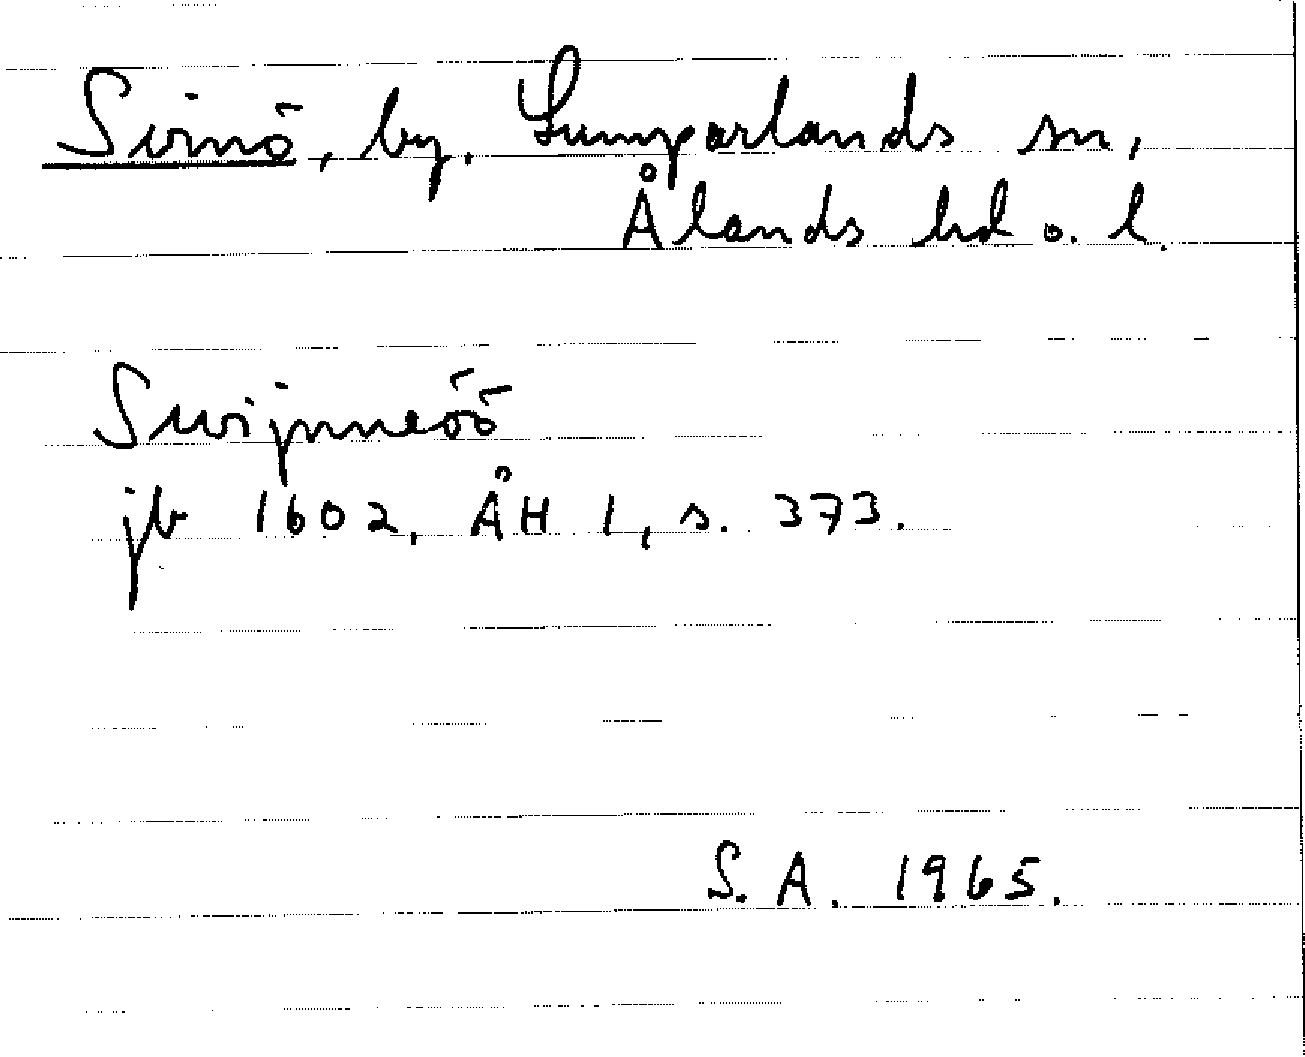 Svinö, by. Lumparlands sn,
Ålands hd o. l.
Swijnneöö
jb 1602, ÅH 1, s. 373.
S. A. 1965.